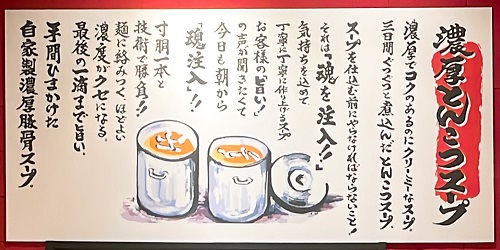 濃厚とんこつスープ
濃厚でコクのあるのにクリーミーなスープ。
三日間ぐつぐつと煮込んだとんこつスープ。
スープを仕込む前にやらなければならないこと!
それは「魂を注入!!」
気持ちを込めて
丁寧に丁寧に作り上げるスープ
お客様の「旨い!」
の声が聞きたくて
今日も朝から
「魂注入!!」
寸胴一本と
技術で勝負!!
麺に絡みつくほどよい
濃度がクセになる。
最後の一滴まで旨い、
手間ひまかけた
自家製濃厚豚骨スープ。